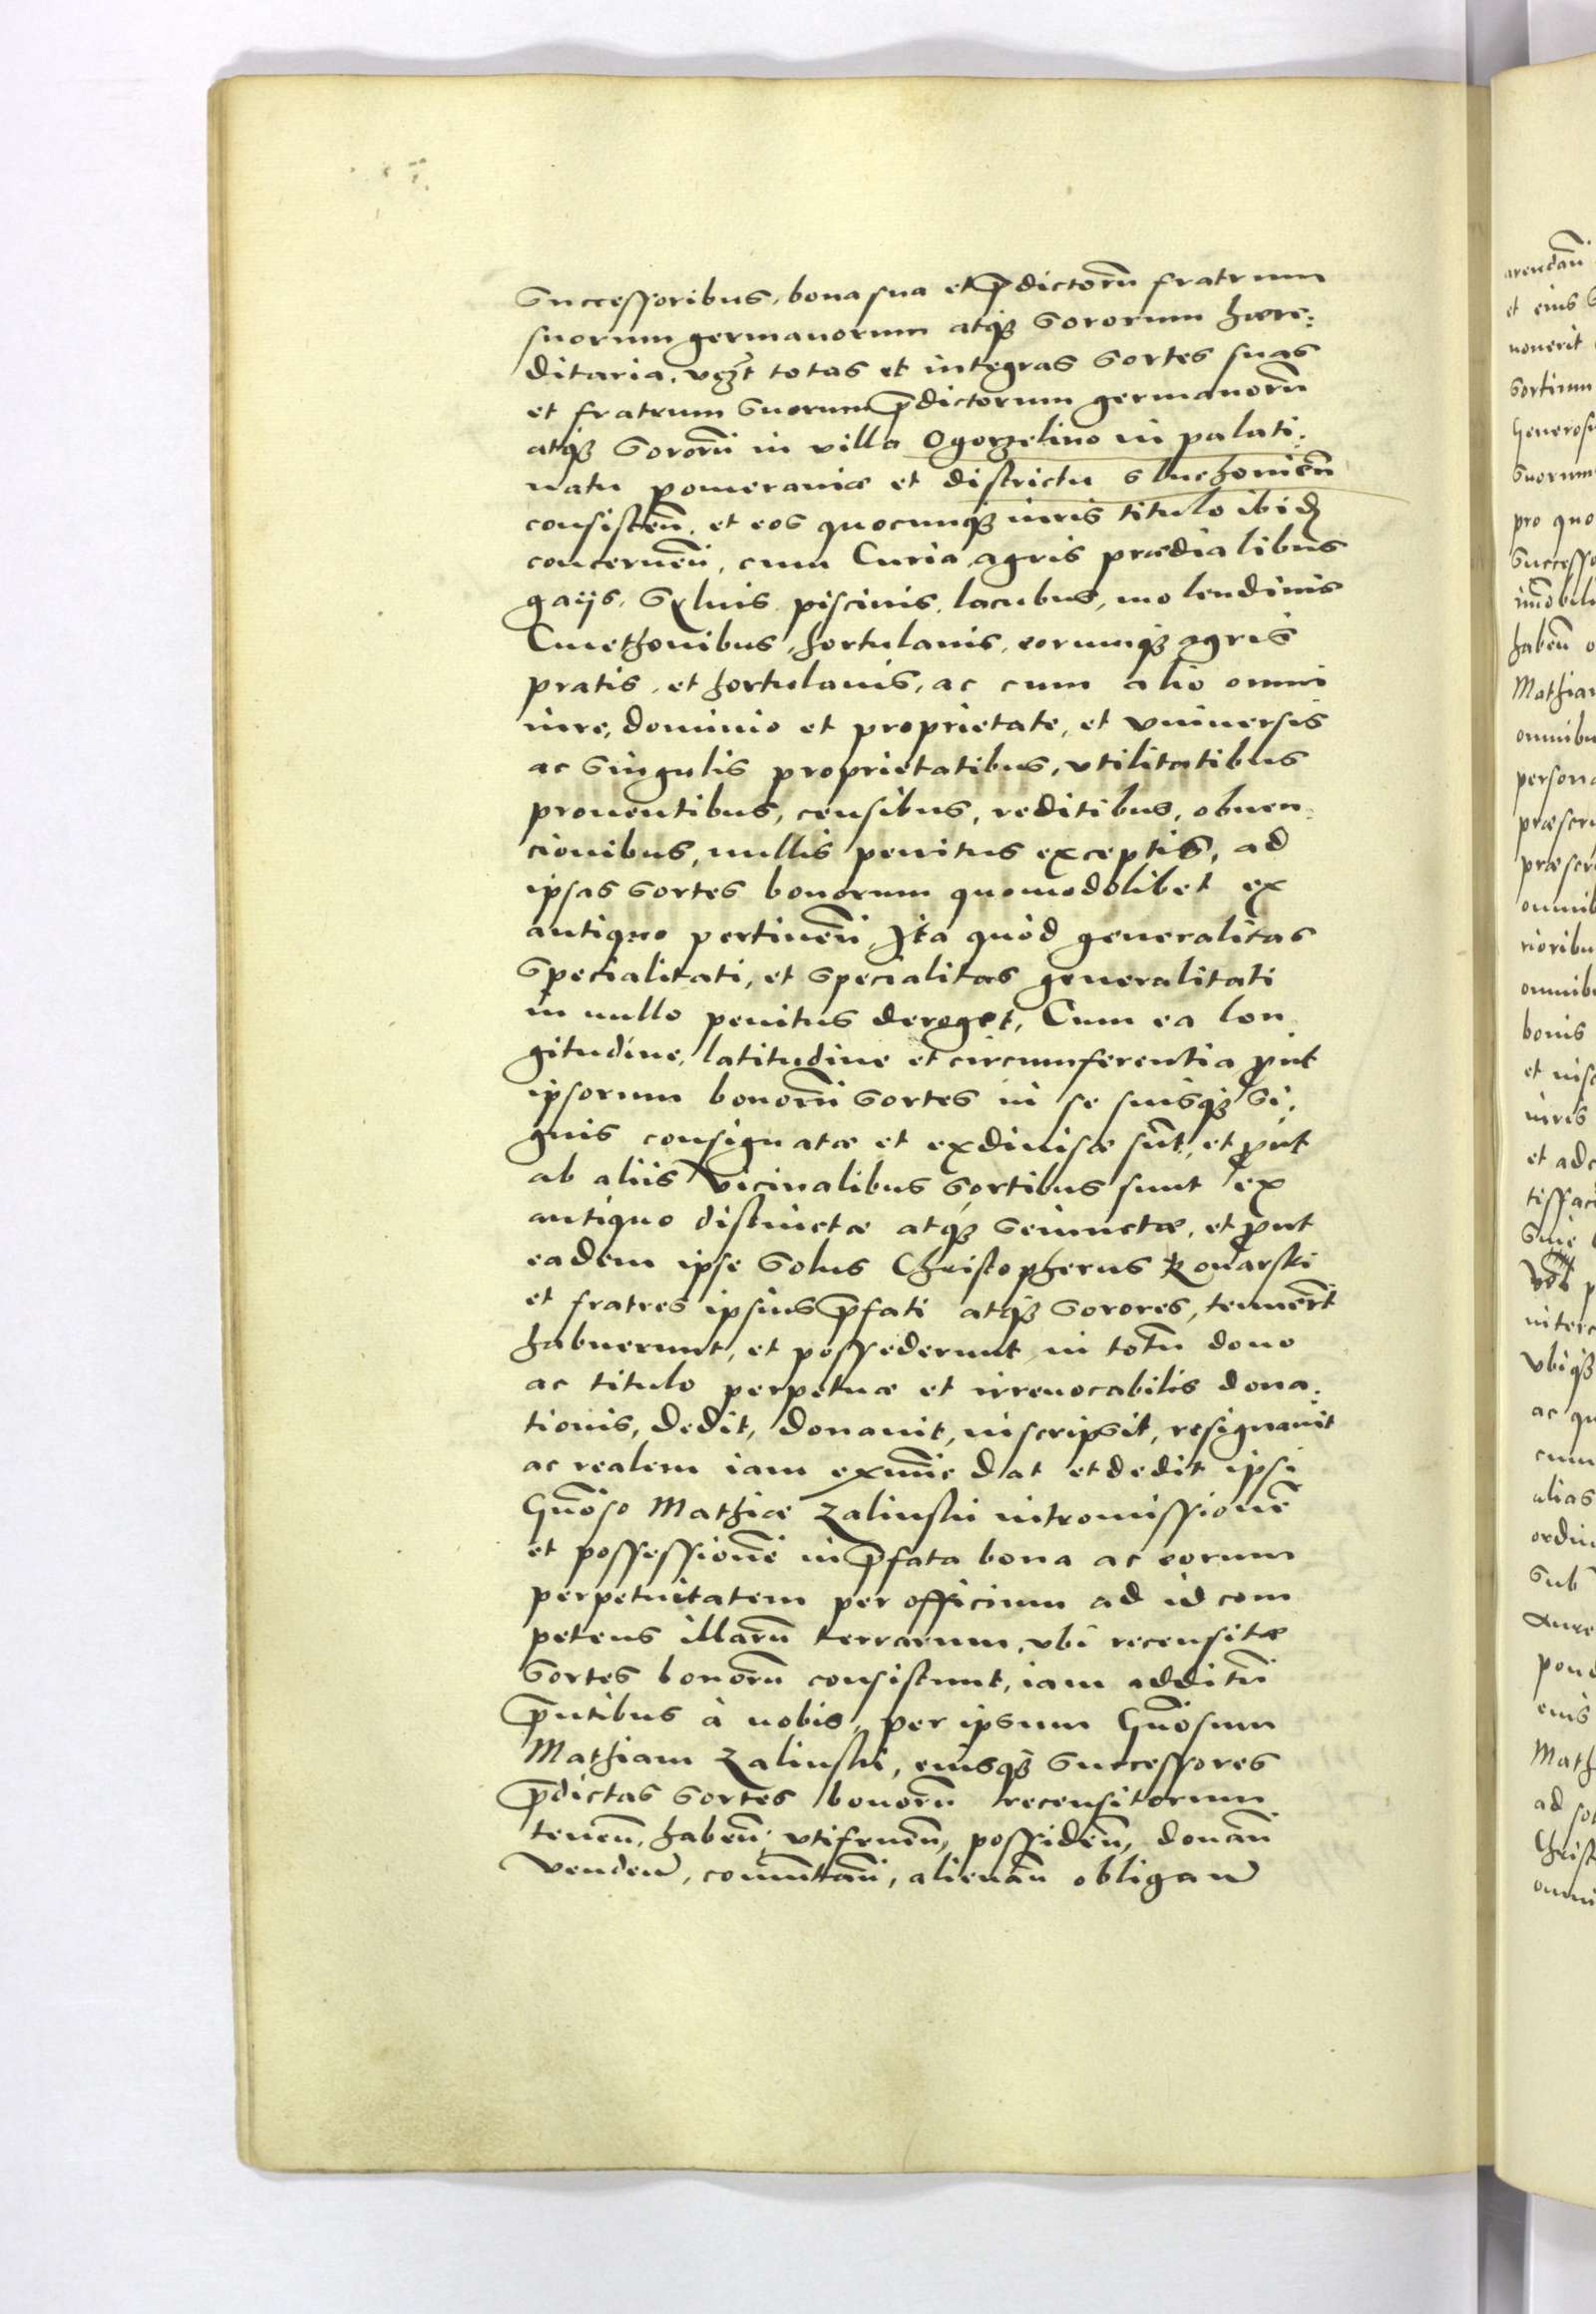 Successoribus, bona sua et p̄dictorū fratrum
suorum germanorum atq̧ Sororum hære-
ditaria, vꝫt totas et integras Sortes suas
et fratrum Suorum p̄dictorum germanorū
atq̧ Sororū in villa Ogorzelino in palati-
natu Pomeraniæ et districtu Sluchoniēn
consisteñ. et eos quocunq̧ iuris titulo ibid
concerneñ, cum Curia, agris prædialibus
gaijs, Syluis, piscinis, lacubus, molendinis
Cmethonibus, hortulanis, eorumq̧ agris
pratis, et hortulanis, ac cum alio omni
iure, dominio et proprietate, et vniuersis
ac Singulis proprietatibus, vtilitatibus
prouentibus, censibus, reditibus, obuen-
cionibus, nullis penitus exceptis, ad
ipsas Sortes bonorum quomodolibet ex
antiquo pertineñ, Ita quod generalitas
Specialitati, et Specialitas generalitati
in nullo penitus deroget, Cum ea lon
gitudine, latitudine et circumferentia put
ipsorum bonorū Sortes in se suisq̧ Si-
gnis consignatæ et exdiuisæ sūt, et put
ab aliis Vicinalibus Sortibus sunt ex
antiquo distinctæ atq̧ Seiunctæ, et put
eadem ipse Solus Christopherus Kowarski
et fratres ipsius p̄fati atq̧ Sorores, tenuerūt
habuerunt, et possederunt in totū dono
ac titulo perpetuæ et irreuocabilis dona-
tionis, dedit, donauit, inscripsit, resignauit
ac realem iam exnūc dat et dedit ipsi
Gn̄oso Mathiæ Zalinski intromissionē
et possessionē in p̄fata bona ac eorum
perpetuitatem per officium ad id com
petens illarū terrarum, vbi recensitæ
Sortes bonorū consistunt, iam additū
p̄ntibus à nobis, per ipsum Gn̄osum
Mathiam Zalinski, eiusq̧ Successores
p̄dictas Sortes bonorū recensitorum
teneñ, habeñ, vtifrueñ, possideñ, donañ
vendeñ, com̄utañ, alienañ obligañ